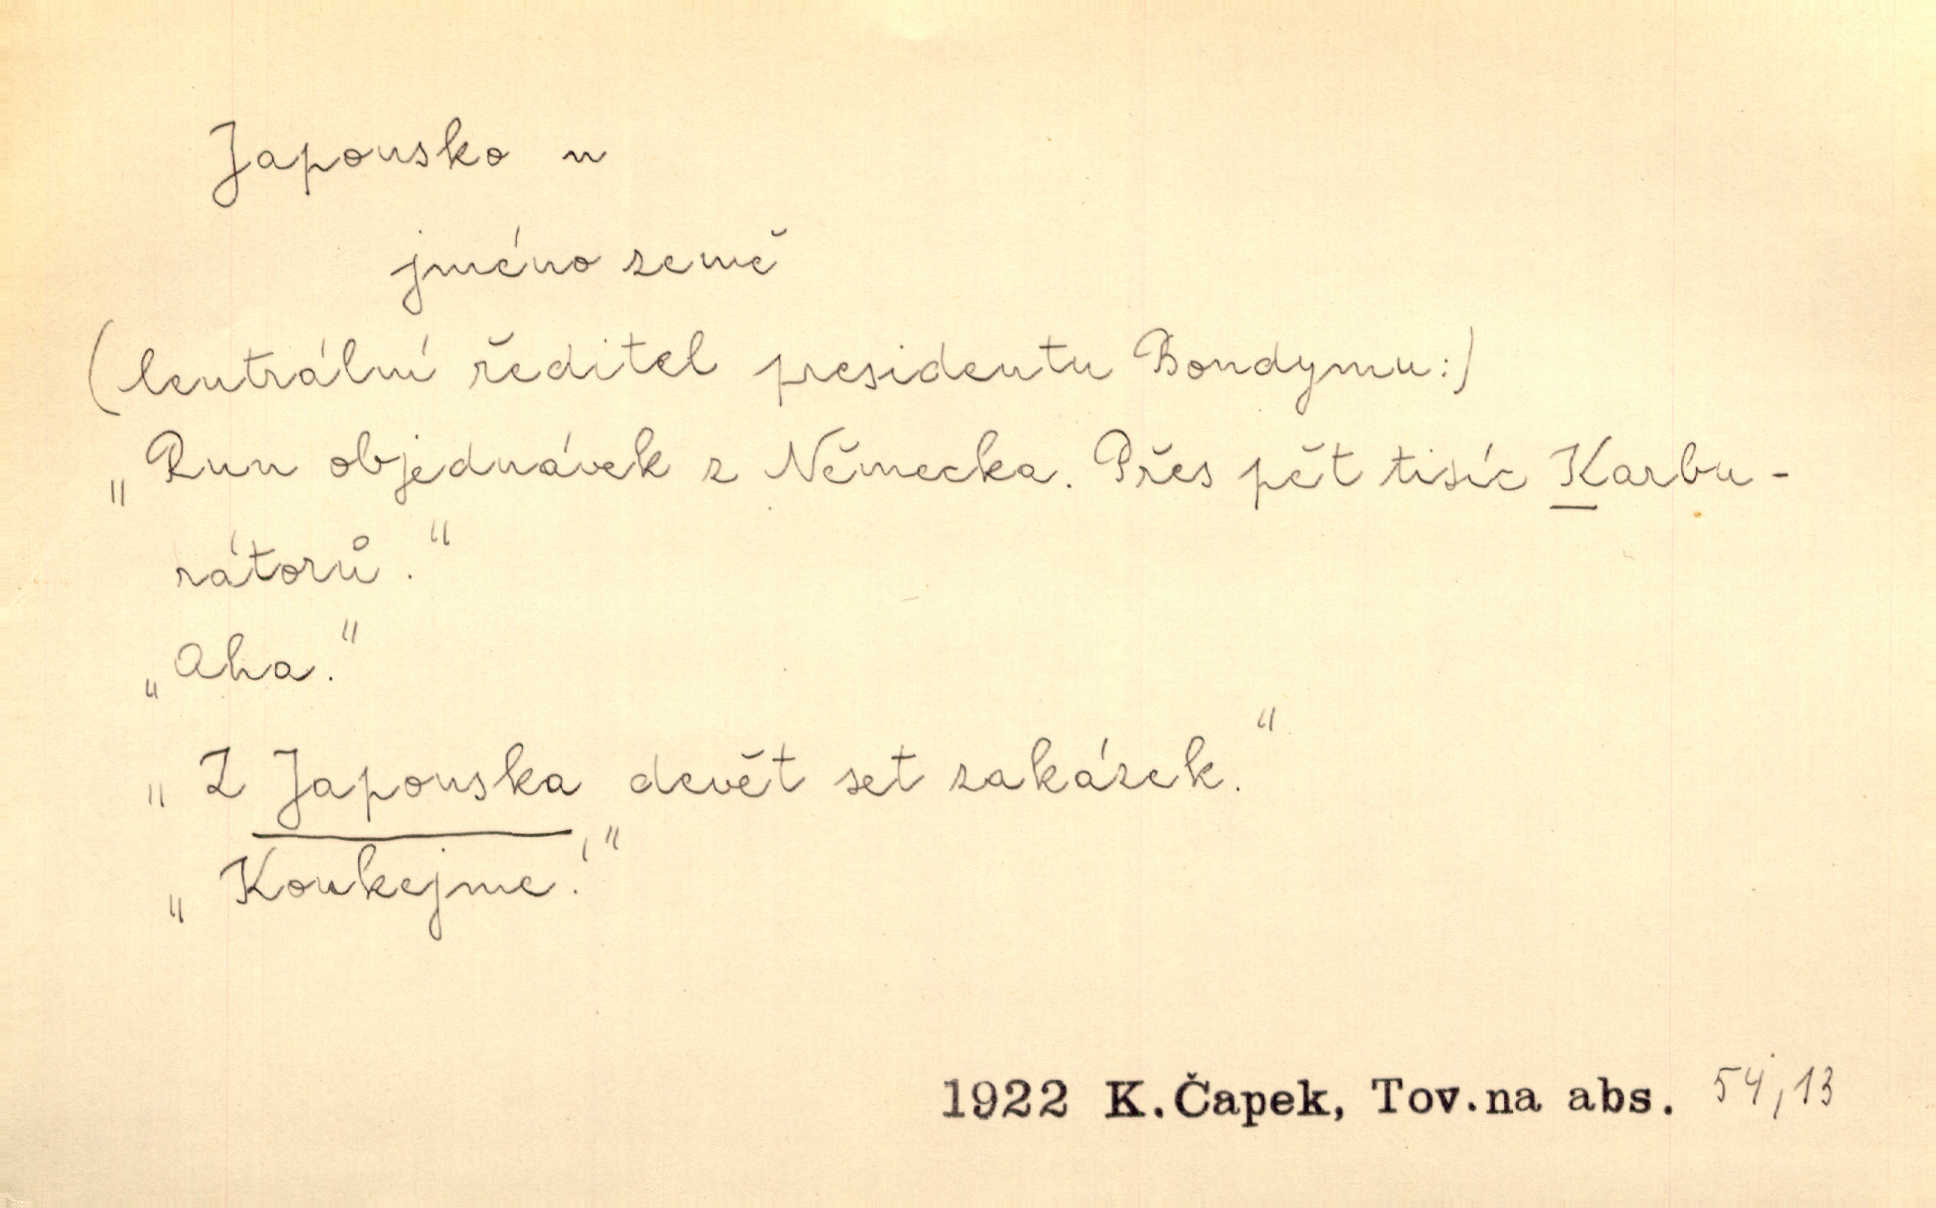 Japonsko n
jméno země
(Centrální ředitel presidentu Bondymu:)
„Run objednávek z Německa. Přes pět tisíc Karbu-
rátorů."
„Aha."
„Z Japonska devět set zakázek."
„Koukejme!"
1922 K.Čapek, Tov.na abs. 54,13